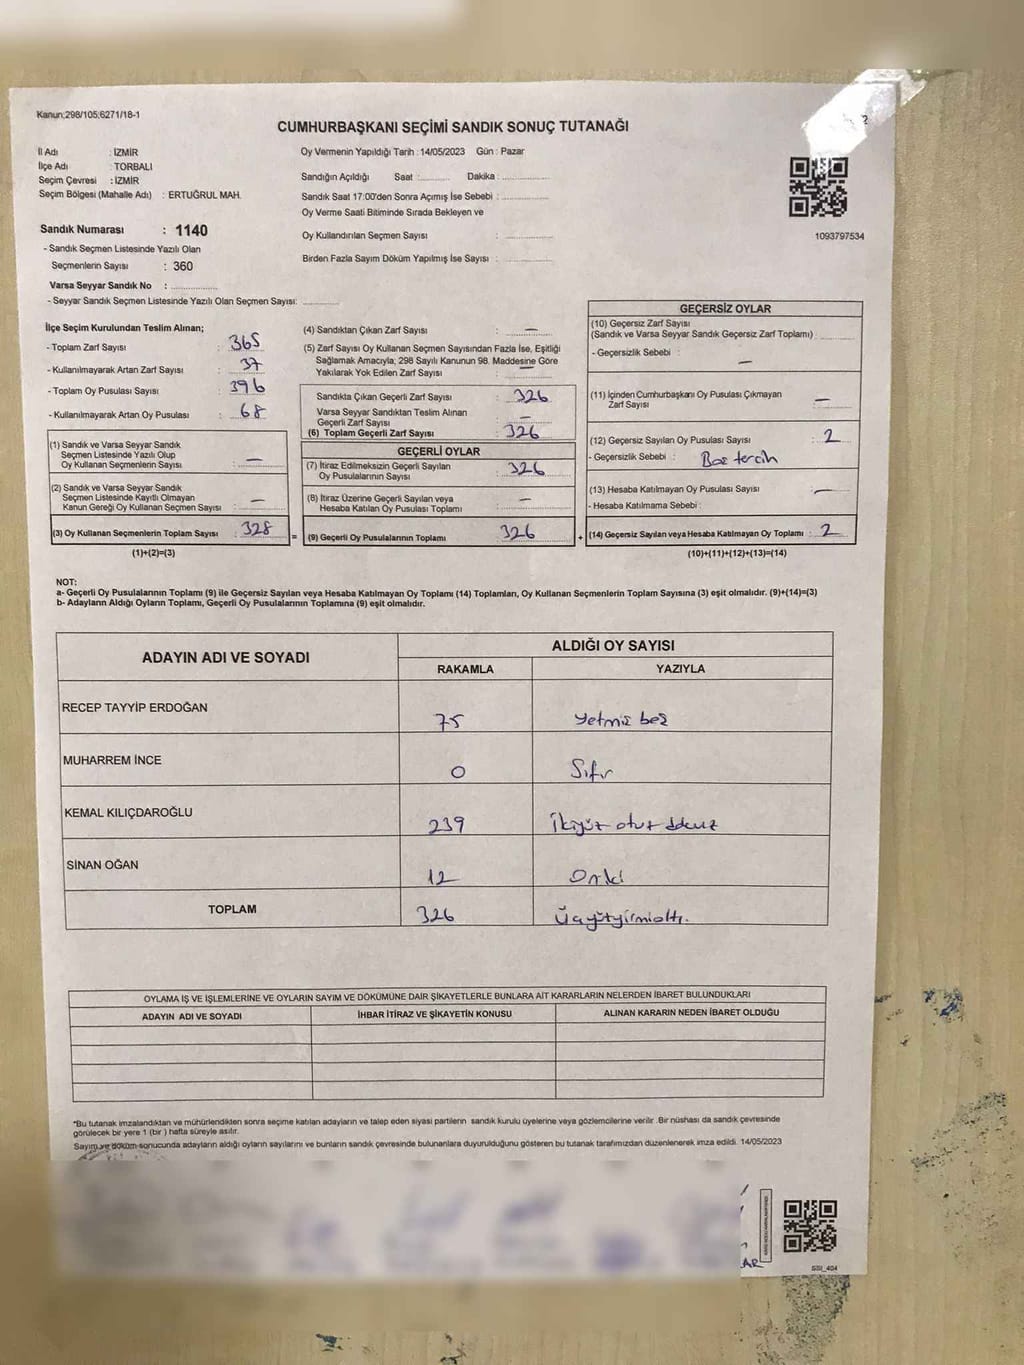 Kanun;298/105;6271/18-1
CUMHURBAŞKANI SEÇİMİ SANDIK SONUÇ TUTANAĞI
İl Adı : İZMİR
İlçe Adı : TORBALI
Seçim Çevresi : İZMİR
Seçim Bölgesi (Mahalle Adı) : ERTUĞRUL MAH.
Sandık Numarası : 1140
- Sandık Seçmen Listesinde Yazılı Olan
Seçmenlerin Sayısı : 360
Varsa Seyyar Sandık No :
- Seyyar Sandık Seçmen Listesinde Yazılı Olan Seçmen Sayısı:
Oy Vermenin Yapıldığı Tarih : 14/05/2023 Gün : Pazar
Sandığın Açıldığı Saat : Dakika :
Sandık Saat 17:00'den Sonra Açımış İse Sebebi :
Oy Verme Saati Bitiminde Sırada Bekleyen ve
Oy Kullandırılan Seçmen Sayısı :
Birden Fazla Sayım Döküm Yapılmış İse Sayısı :
1093797534
İlçe Seçim Kurulundan Teslim Alınan;
- Toplam Zarf Sayısı : 365
- Kullanılmayarak Artan Zarf Sayısı : 37
- Toplam Oy Pusulası Sayısı : 396
- Kullanılmayarak Artan Oy Pusulası : 68
(1) Sandık ve Varsa Seyyar Sandık
Seçmen Listesinde Yazılı Olup
Oy Kullanan Seçmenlerin Sayısı : —
(2) Sandık ve Varsa Seyyar Sandık
Seçmen Listesinde Kayıtlı Olmayan
Kanun Gereği Oy Kullanan Seçmen Sayısı : —
(3) Oy Kullanan Seçmenlerin Toplam Sayısı : 328
(1)+(2)=(3)
(4) Sandıktan Çıkan Zarf Sayısı : —
(5) Zarf Sayısı Oy Kullanan Seçmen Sayısından Fazla İse, Eşitliği
Sağlamak Amacıyla; 298 Sayılı Kanunun 98. Maddesine Göre
Yakılarak Yok Edilen Zarf Sayısı : —
Sandıkta Çıkan Geçerli Zarf Sayısı : 326
Varsa Seyyar Sandıktan Teslim Alınan
Geçerli Zarf Sayısı : —
(6) Toplam Geçerli Zarf Sayısı : 326
GEÇERLİ OYLAR
(7) İtiraz Edilmeksizin Geçerli Sayılan
Oy Pusulalarının Sayısı : 326
(8) İtiraz Üzerine Geçerli Sayılan veya
Hesaba Katılan Oy Pusulası Toplamı : —
= (9) Geçerli Oy Pusulalarının Toplamı : 326
GEÇERSİZ OYLAR
(10) Geçersiz Zarf Sayısı
(Sandık ve Varsa Seyyar Sandık Geçersiz Zarf Toplamı)
- Geçersizlik Sebebi : —
(11) İçinden Cumhurbaşkanı Oy Pusulası Çıkmayan
Zarf Sayısı : —
(12) Geçersiz Sayılan Oy Pusulası Sayısı : 2
- Geçersizlik Sebebi : Boş tercih
(13) Hesaba Katılmayan Oy Pusulası Sayısı : —
- Hesaba Katılmama Sebebi :
+ (14) Geçersiz Sayılan veya Hesaba Katılmayan Oy Toplamı : 2
(10)+(11)+(12)+(13)=(14)
NOT:
a- Geçerli Oy Pusulalarının Toplamı (9) ile Geçersiz Sayılan veya Hesaba Katılmayan Oy Toplamı (14) Toplamları, Oy Kullanan Seçmenlerin Toplam Sayısına (3) eşit olmalıdır. (9)+(14)=(3)
b- Adayların Aldığı Oyların Toplamı, Geçerli Oy Pusulalarının Toplamına (9) eşit olmalıdır.
ADAYIN ADI VE SOYADI ALDIĞI OY SAYISI
RAKAMLA YAZIYLA
RECEP TAYYİP ERDOĞAN 75 Yetmiş beş
MUHARREM İNCE 0 Sıfır
KEMAL KILIÇDAROĞLU 239 İkiyüz otuz dokuz
SİNAN OĞAN 12 Oniki
TOPLAM 326 Üçyüzyirmialtı.
OYLAMA İŞ VE İŞLEMLERİNE VE OYLARIN SAYIM VE DÖKÜMÜNE DAİR ŞİKAYETLERLE BUNLARA AİT KARARLARIN NELERDEN İBARET BULUNDUKLARI
ADAYIN ADI VE SOYADI İHBAR İTİRAZ VE ŞİKAYETİN KONUSU ALINAN KARARIN NEDEN İBARET OLDUĞU
*Bu tutanak imzalandıktan ve mühürlendikten sonra seçime katılan adayların ve talep eden siyasi partilerin sandık kurulu üyelerine veya gözlemcilerine verilir. Bir nüshası da sandık çevresinde
görülecek bir yere 1 (bir ) hafta süreyle asılır.
Sayım ve döküm sonucunda adayların aldığı oyların sayılarını ve bunların sandık çevresinde bulunanlara duyurulduğunu gösteren bu tutanak tarafımızdan düzenlenerek imza edildi. 14/05/2023
SSI_404